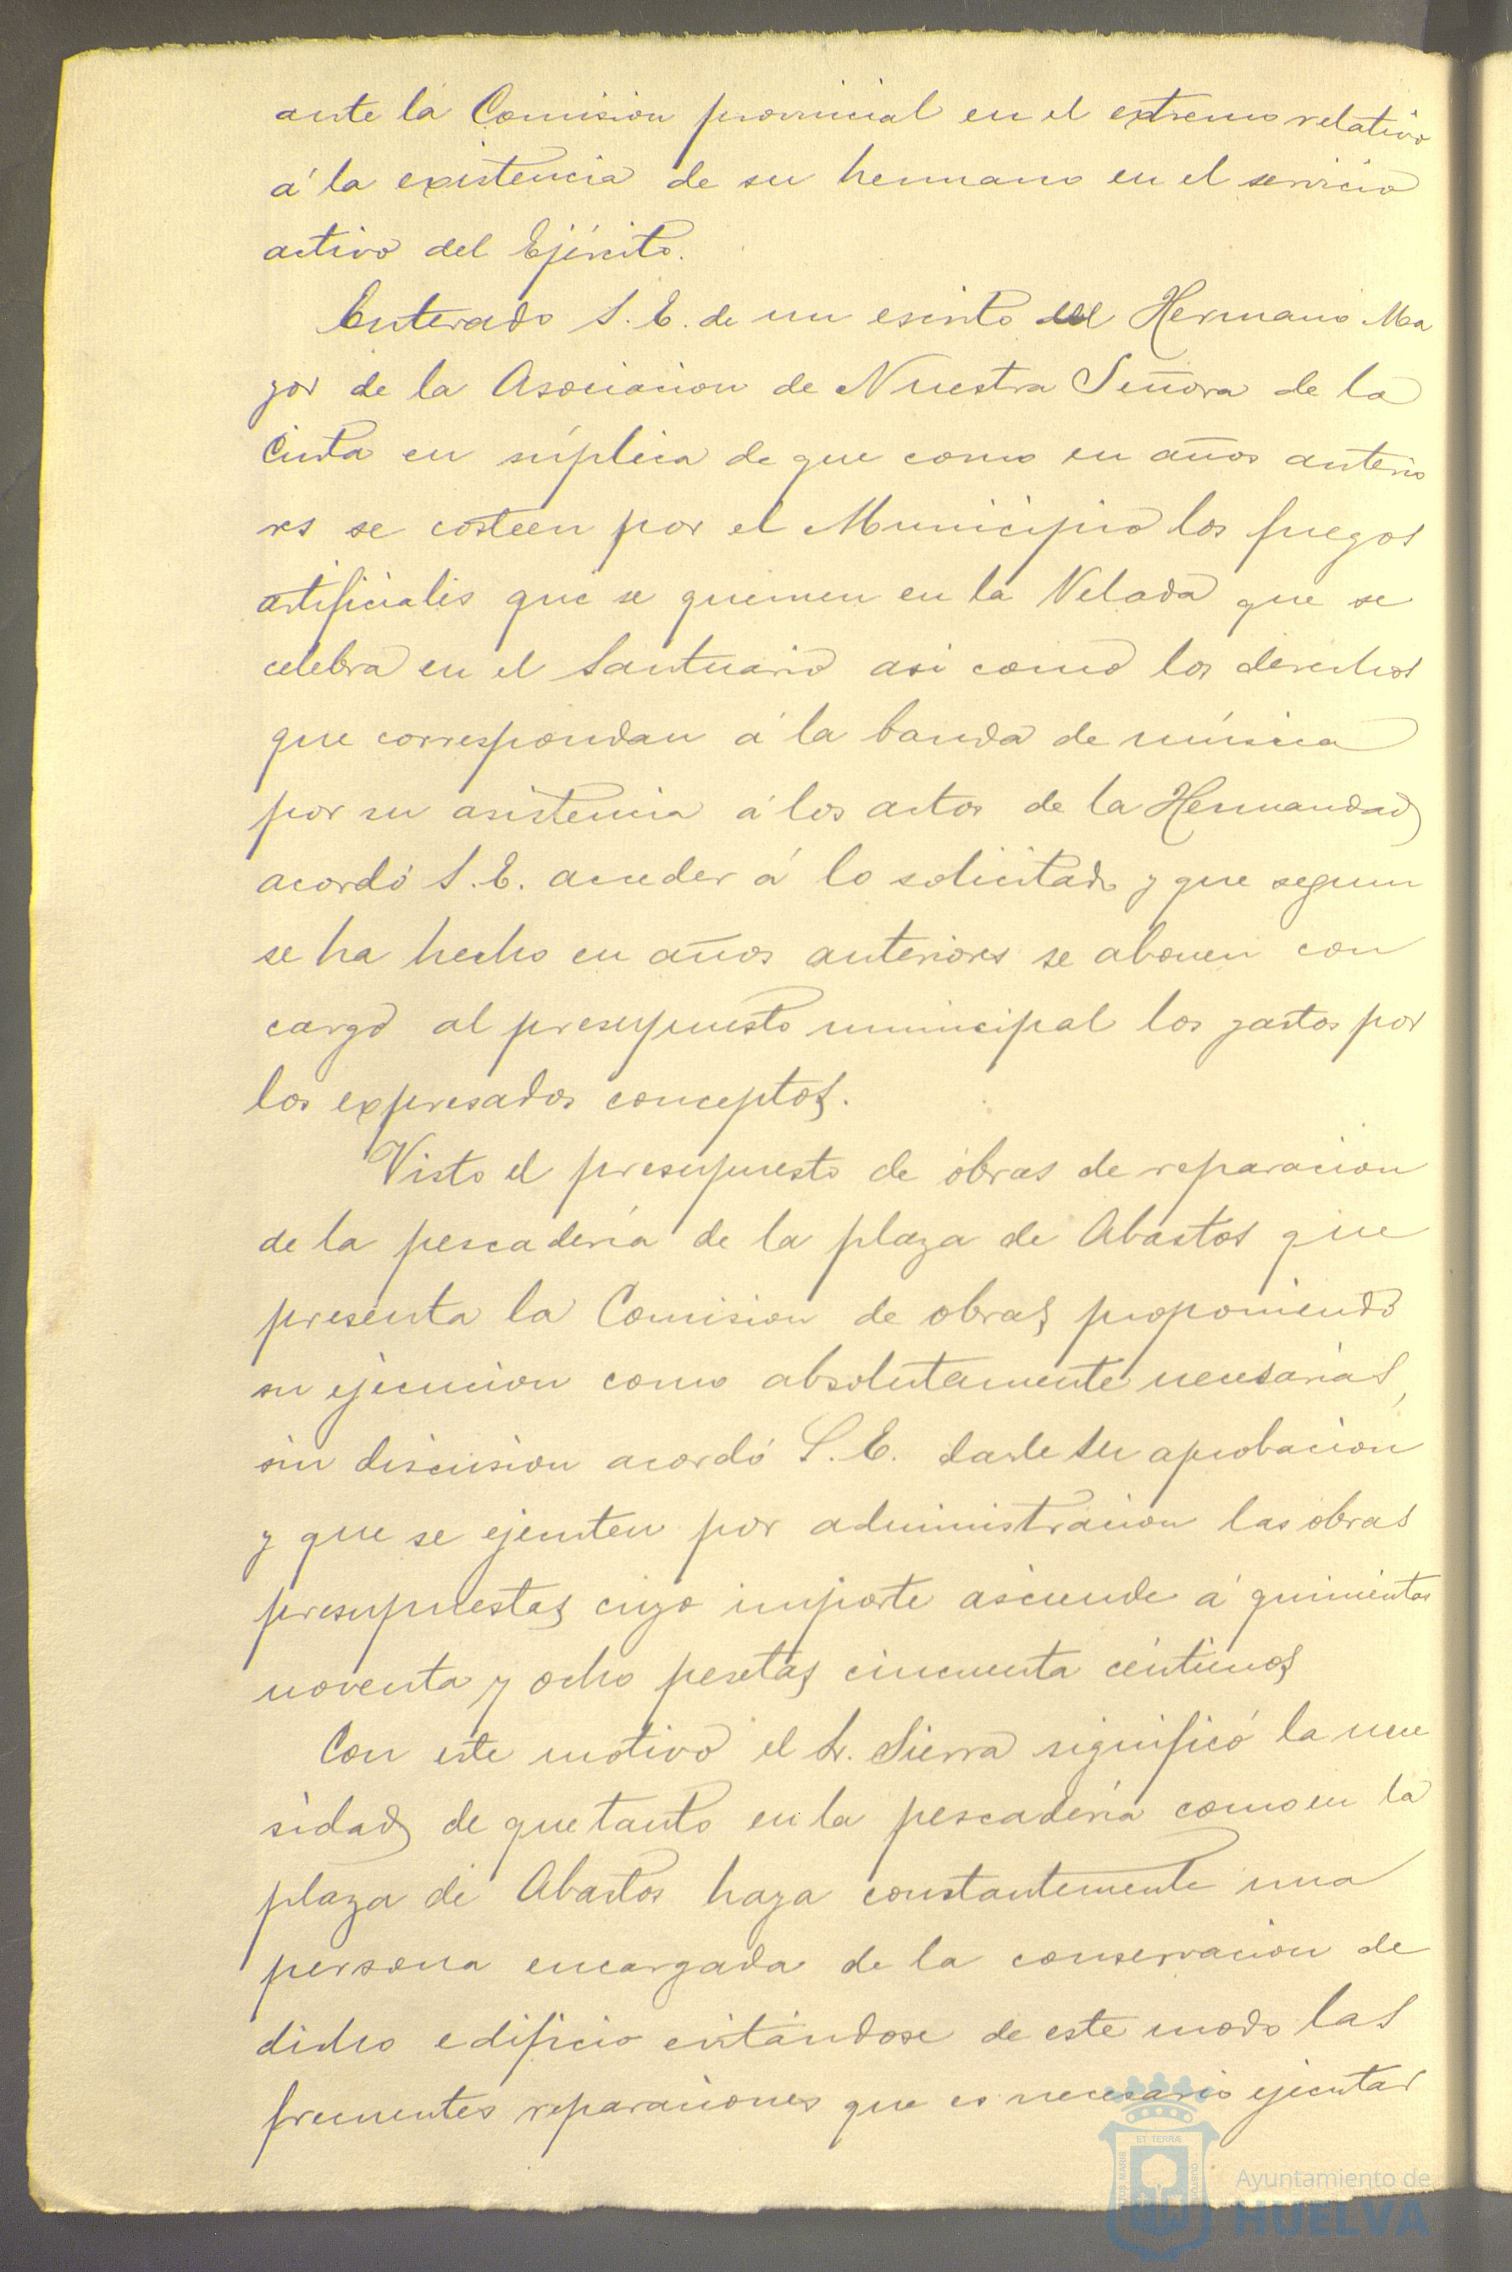 ante la Comision provincial en el extremo relativo
á la existencia de su hermano en el servicio
activo del Ejército.
Enterado S. E. de un escrito del Hermano Ma
yor de la Asociacion de Nuestra Señora de la
Cinta en súplica de que como en años anterio
res se costeen por el Municipio los fuegos
artificiales que se quemen en la Velada que se
celebra en el Santuario asi como los derechos
que correspondan á la banda de música
por su asistencia á los actos de la Hermandad
acordó S. E. acceder á lo solicitado y que segun
se ha hecho en años anteriores se abonen con
cargo al presupuesto municipal los gastos por
los expresados conceptos.
Visto el presupuesto de obras de reparacion
de la pescadería de la plaza de Abastos que
presenta la Comision de obras proponiendo
su ejecucion como absolutamente necesarias,
sin discusion acordó S. E. darle su aprobacion
y que se ejecuten por administracion las obras
presupuestas cuyo importe asciende á quinientas
noventa y ocho pesetas cincuenta céntimos
Con este motivo el Sr. Sierra significó la nece
sidad de que tanto en la pescadería como en la
plaza de Abastos haya constantemente una
persona encargada de la conservacion de
dicho edificio evitándose de este modo las
frecuentes reparaciones que es necesario ejecutar
ET TERRÆ
Ayuntamiento de
HUELVA